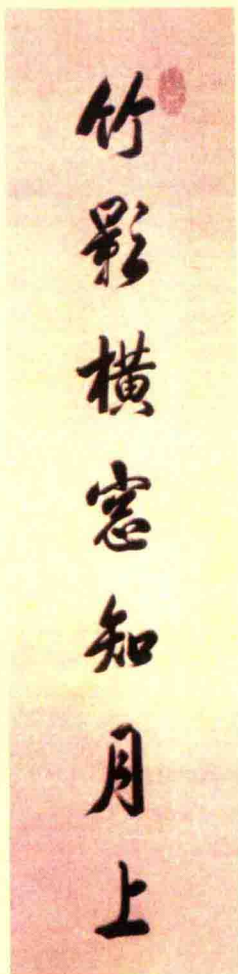 竹影横窓知月上